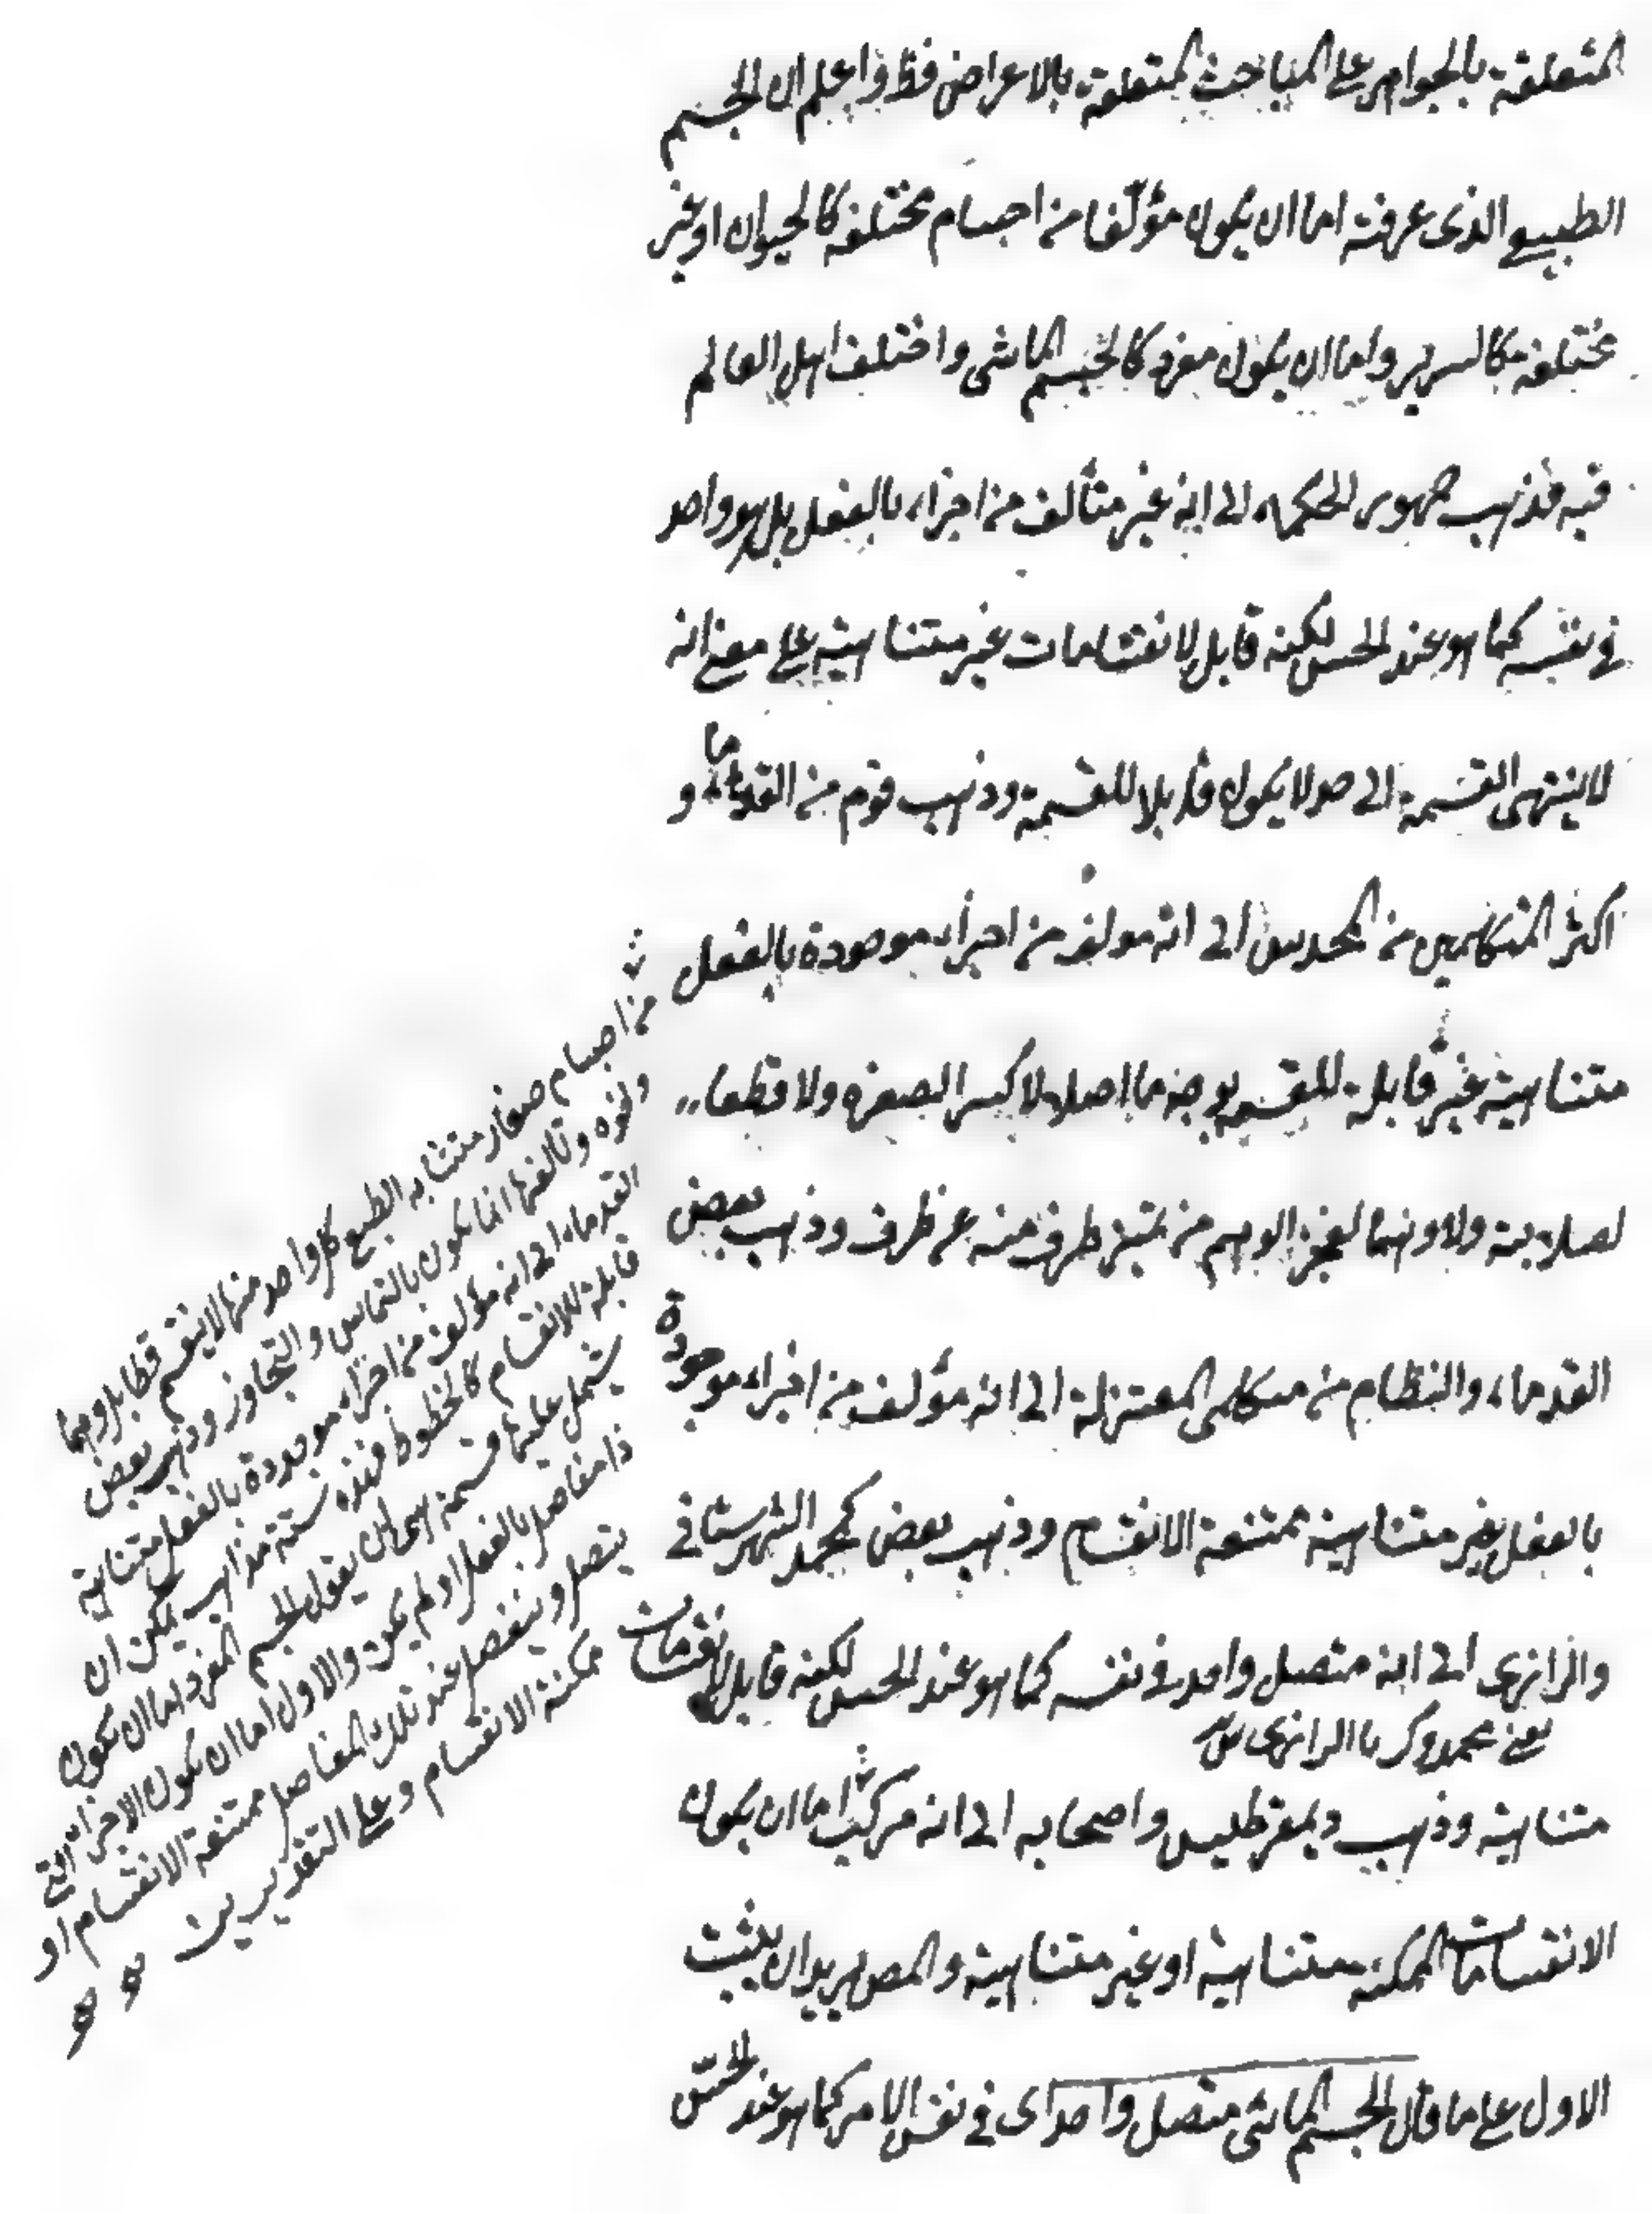 المتعلقة بالجواهر على المباحث المتعلقة بالاعراض فظ واعلم ان الجسم
الطبيعي الذى عرفته اما ان يكون مؤلفا من اجسام مختلفة كالحيوان او غير
مختلفة كالسرير واما ان يكون مفرد كالجسم الماشى واختلف اهل العالم
فيه فذهب جمهور الحكماء الى انه غير متألف من اجزاء بالفعل بل هو واحد
في نفسه كما هو عند الحس لكنه قابل لانقسامات غير متناهية على معنى انه
لا ينتهى القسمة الى حد لا يكون قابلا للقسمة وذهب قوم من القدماء و
اكثر المتكلمين من المحدثين الى انه مولف من اجزاء موجودة بالفعل
متناهية غير قابلة للقسمة بوجه ما اصلا لا كسرا لصغره ولا قطعا
لصلابته ولا وهما لعجز الوهم من تميز طرف منه عن طرف وذهب بعض
القدماء والنظام من متكلمى المعتزلة الى انه مؤلف من اجزاء موجودة
بالفعل غير متناهية ممتنعة الانقسام وذهب بعض كمحمد الشهرستاني
والرازى الى انه متصل واحد في نفسه كما هو عند الحس لكنه قابل لانقسامات
يعنى محمد زكريا الرازى
متناهية وذهب ديمقرطيس واصحابه الى انه مركب اما ان يكون
الانقسامات الممكنة متناهية او غير متناهية والمص يريد ان يثبت
الاول على ما قال الجسم الماشى متصل واحد اى في نفس الامر كما هو عند الحس
من اجسام صغار متشابه الطبع كل واحد منها لا ينقسم قطا بل وهما
ونحوه وتالفها انما يكون بالتماس والتجاوز وذهب بعض
القدماء الى انه مؤلف من اجزاء موجودة بالفعل متناهية
قابلة للانقسام كالخطوط فهذه ستة مذاهب يمكن ان
يشمل عليها قسمة هى ان يقول الجسم المفرد اما ان يكون
ذا مفاصل بالفعل او لم يكن والاول اما ان يكون الاجزاء التى
يتصل وينفصل عند تلك المفاصل ممتنعة الانقسام او
ممكنة الانقسام وعلى التقديرين